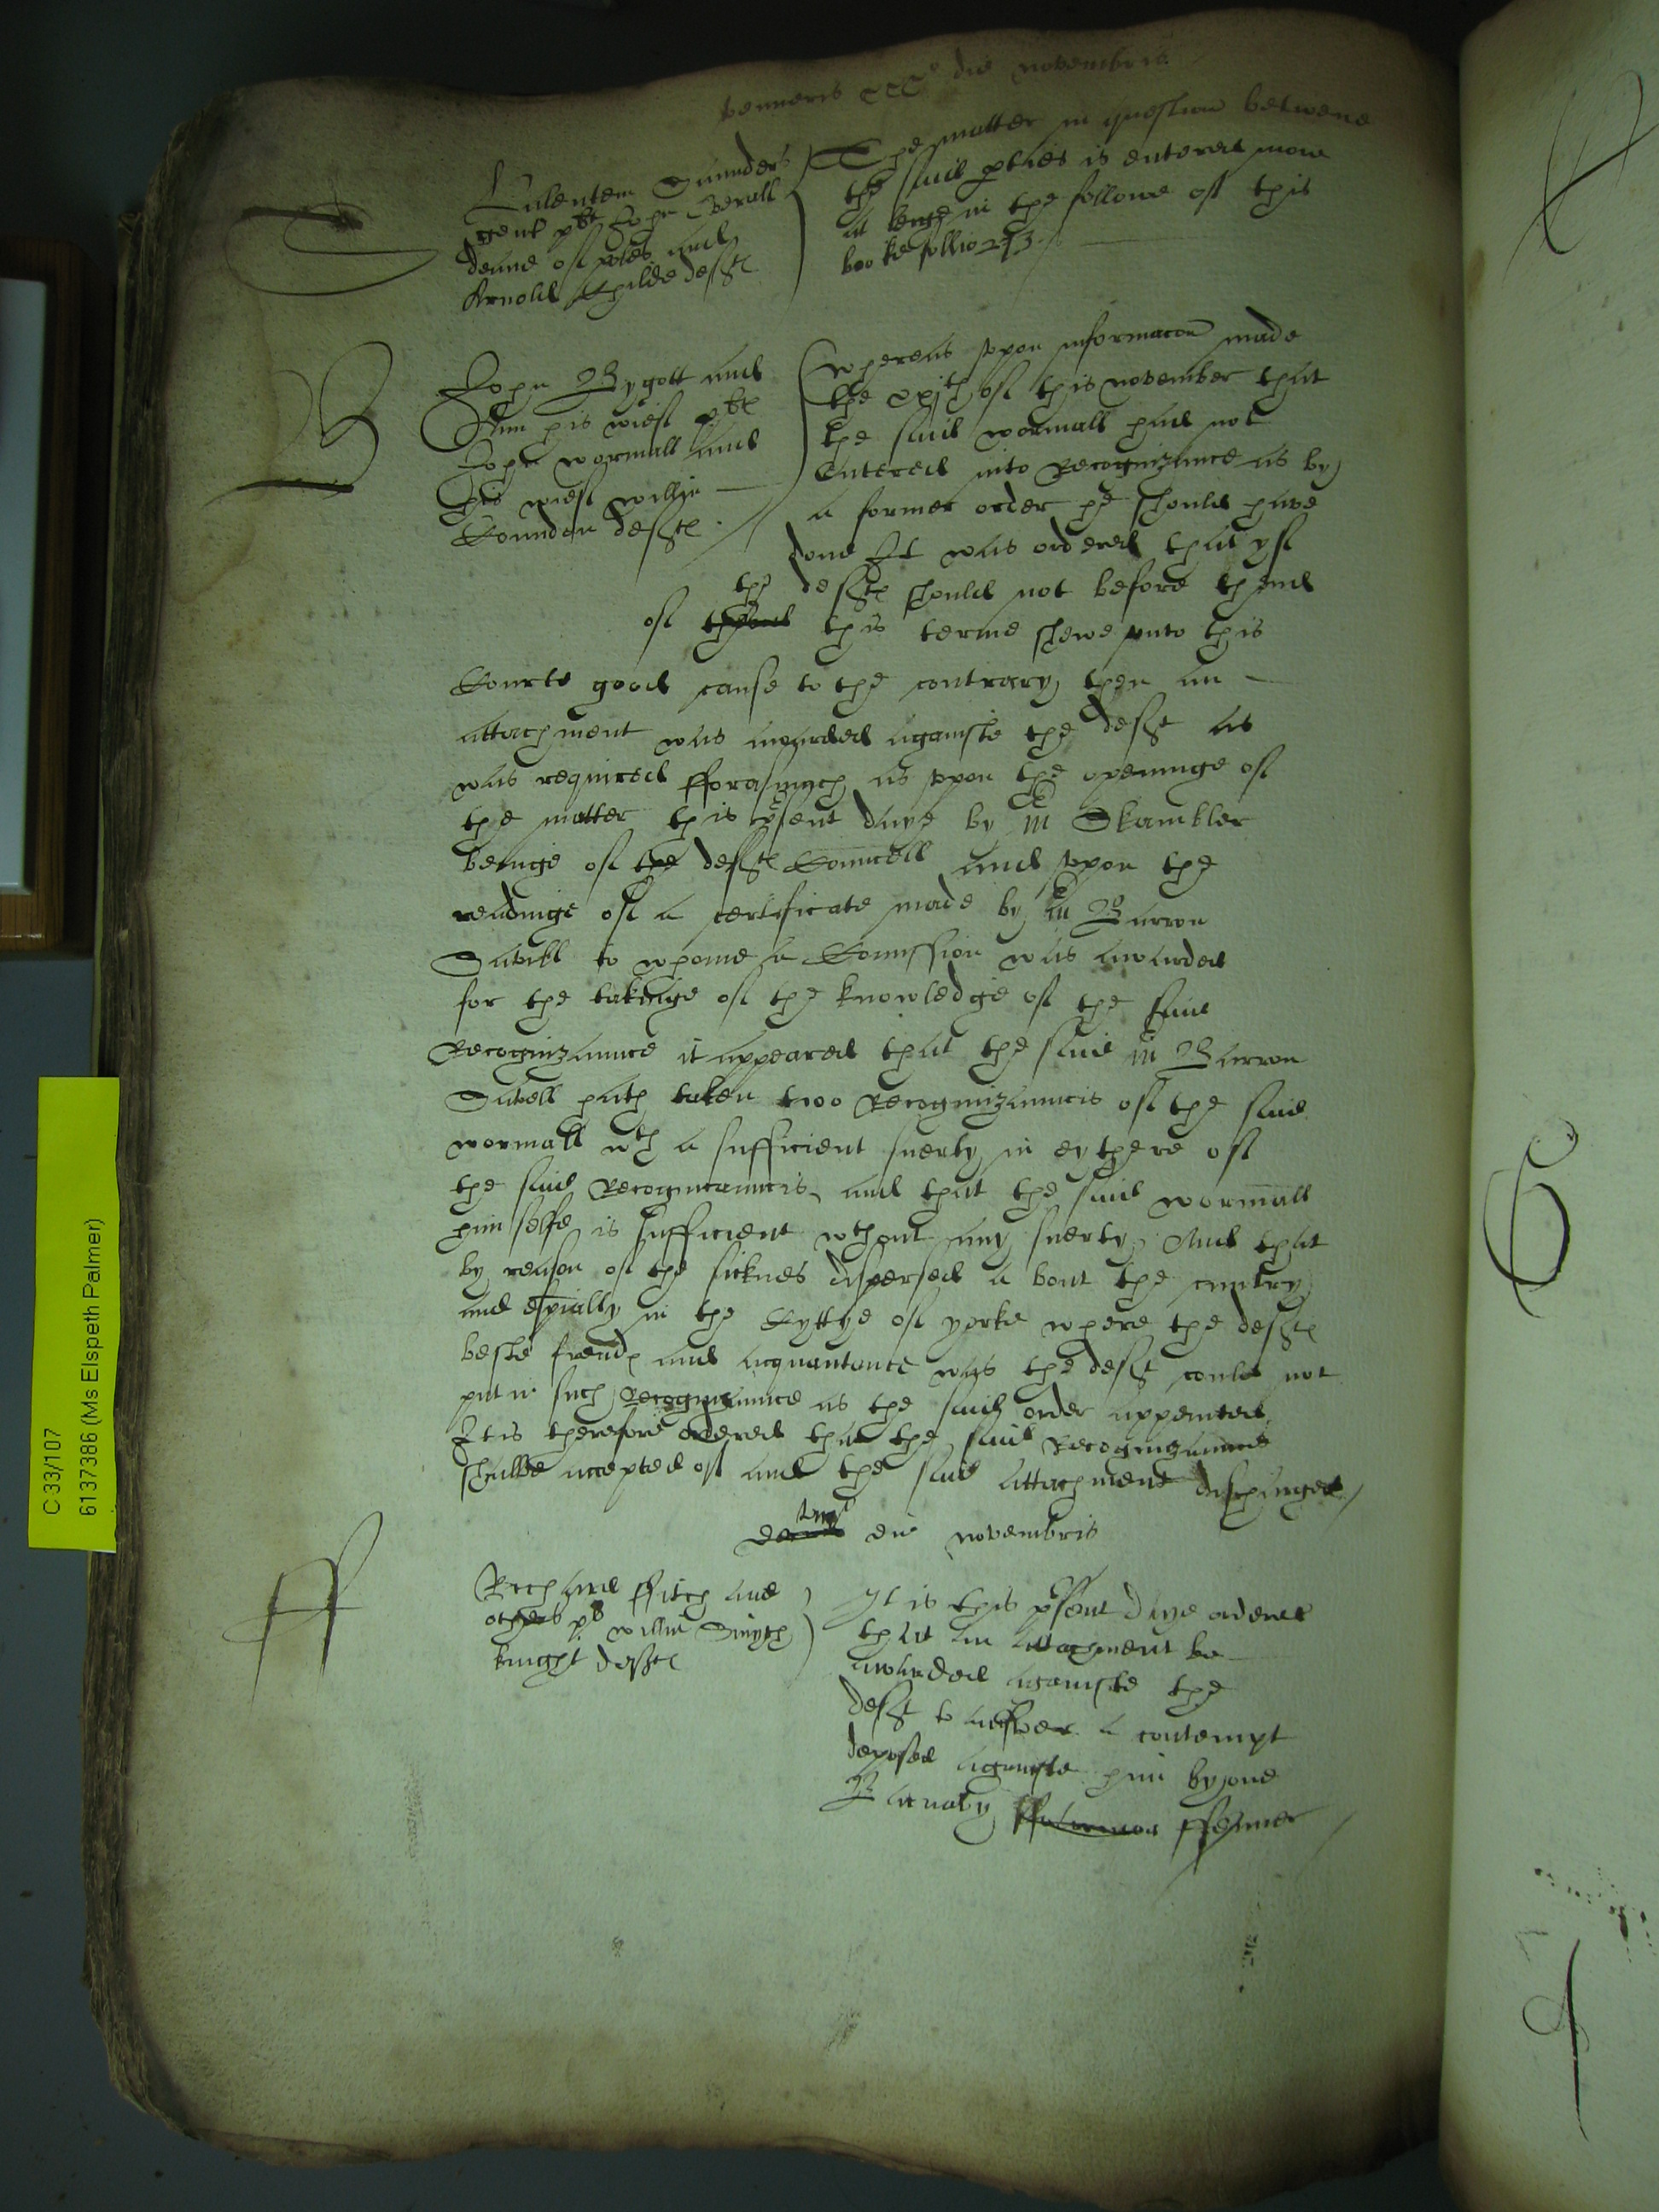 Venneris xxx° die Novembris
Valenten Saunders
gent plt John Overall
deane of poles and
Arnold Childe deftes
The matter in question betwene
the said pties is entered more
at large in the followe of this
booke follio 273
John Bygott and
Ann his wief plt
John Wormall and
his wief Willm
Counden deftes
Whereas upon informacon made
the xxjth of this November that
the said Wormall had not
Entered into Recognizance as by
a former order he should have
done It was ordered that yf
the deftes should not before thend
of thend this terme shewe unto this
Courte good cause to the contrary then an
attachment was awarded againste the deft as
was required fforasmuch as upon the openinge of
the matter this psent daye by Mr Skambler
beinge of the deftes Councell and upon the
readinge of a certificate made by Mr Barron
Savill to whome a Comission was awarded
for the takinge of the knowledge of the said
Recognizaunce it appeared that the said Mr Barron
Savell hath taken two Recognizauncis of the said
Wormall wth a sufficient suerty in eythere of
the said Recognicauncis and that the said Wormall
him selfe is sufficient wthout any suerty And that
by reason of the sicknes dispersed a bout the cuntry
and espially in the Cyttye of yorke where the deftes
beste frends and acquantance was the deft could not
put in such Recognicaunce as the said order appointed
It is therefore ordered that the said Recognizaunce
shalbe accepted of and the said Attachment dischardged
die Novembris
Richard ffitch and
others pl Willm Smyth
knight deftes
It is this psent daye ordered
that an attachment be
awarded againste the
deft to answer a contempt
deposed againste him by one
Barnaby ffenner